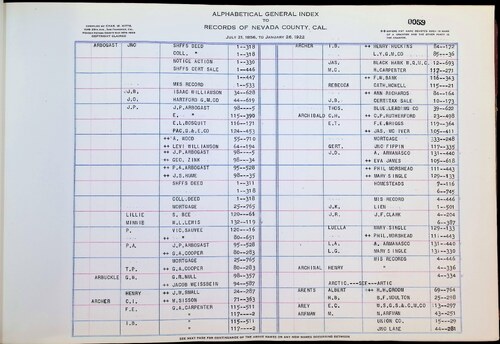 ALPHABETICAL GENERAL INDEX
TO
RECORDS OF NEVADA COUNTY, CAL.
JULY 21, 1856, TO JANUARY 28, 1922
0059
COPYRIGHT CLAIMED
ARBOGAST JNO SHFFS DEED 1--318
COLL. " 1--318
NOTICE ACTION 1--330
SHFFS CERT SALE 1--446
" 1--447
MIS RECORD 1--933
J.B. ISAAC WILLIAMSON 34--628
J.D. HARTFORD G.M.CO 44--619
J.P. J.P.ARBOGAST 98---5
E. " 115--390
E.L.BOSQUIT 116--171
PAC.G.&E.CO 124--453
++ A. WOOD 55--710
++ LEVI WILLIAMSON 64--194
++ J.P.ARBOGAST 98---5
++ GEO. ZINK 98--34
++ P.A.ARBOGAST 95--528
++ J.S.HUME 98--35
SHFFS DEED 1--311
" 1--318
COLL.DEED 1--318
MORTGAGE 25--765
LILLIE S. BEE 120--66
MINNIE R.L.LEWIS 132--119
P. VIC SAUVEE 120--16
++ " 80--651
P.A. J.P.ARBOGAST 95--528
++ G.A.COOPER 80--283
MORTGAGE 25--765
T.P. ++ G.A.COOPER 80--283
ARBUCKLE G.H. G.R.MALL 98--357
++ JACOB WEISSBEIN 94--587
HENRY ++ J.W.SMALL 2--287
ARCHER C.I. ++ W.SISSON 71--363
F.E. G.A.CARPENTER 115--511
" 117---2
I.B. " 115--511
" 117---2
ARCHER I.B. ++ HENRY HOCKING 84--172
L.Y.MC COY 85--36
JAS. BLACK BANK B.G.H.C. 12--693
M.E. M CARPENTER 117--271
++ F.N.BANK 116--343
REBECCA CATH.HOWELL 115--21
++ ANN RICHARDS 84--164
J.B. CERTIS&A SALE 10--173
THOS. BLUE LEADING CO 39--620
ARCHIBALD C.H. ++ C.P.RUTHERFORD 23--498
E.T. F.E.BRIGGS 119--364
++ JAS. MC IVER 105--411
MORTGAGE 33--248
GERT. JNO TIPPIN 117--335
J.D. A. ARMANASCO 131--440
++ EVA JAMES 105--618
++ PHIL MORSHEAD 111--443
++ MARY SINGLE 129--133
HOMESTEADS 7--116
" 6--745
MIS RECORD 4--446
J.K. LIEN 1--501
J.R. J.F.CLARK 4--204
" 6--387
LUELLA MARY SINGLE 129--133
++ PHIL.MORSHEAD 111--443
L.A. A. ARMANASCO 131--440
L.G. MARY SINGLE 129--133
MIS RECORDS 4--446
ARCHINAL HENRY " 4--336
" 9--334
ARCTIC.---SEE---ARTIC
ARENTS ALBERT ++ H.H.CROOM 69--764
H.B. ++ B.F.MOULTON 25--298
AREY E.C. H.S.G.S.&G.M.CO 113--297
ARFMAN M. M.ARFMAN 43--251
UNION CO. 15--29
JNO LANE 44--281
SEE NEXT PAGE FOR CONTINUANCE OF THE ABOVE NAMES OR ANY NEW NAMES BEGINNING BETWEEN